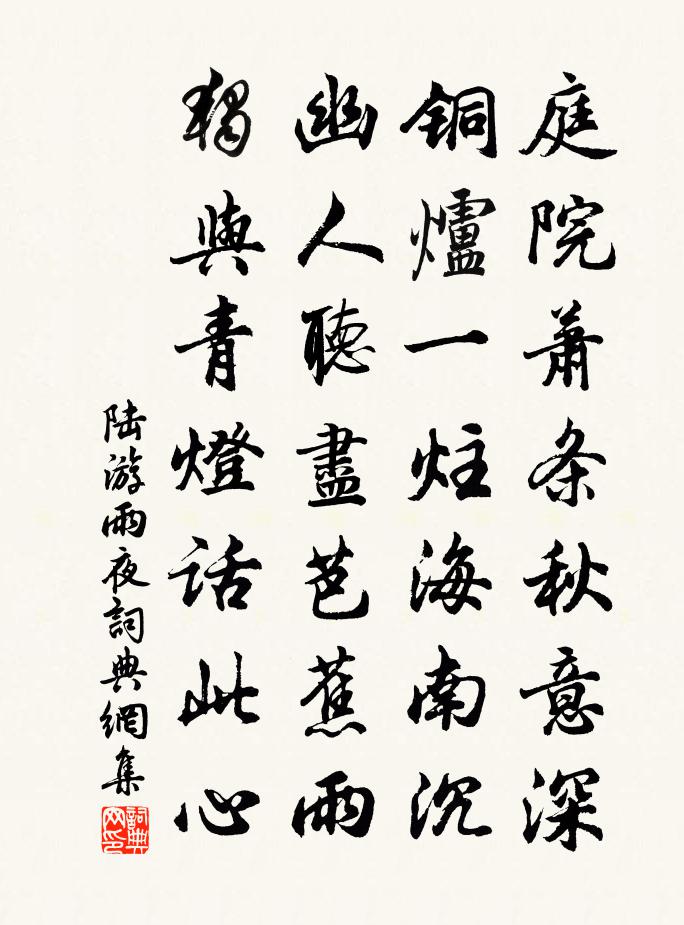 庭院萧条秋意深
铜爐一炷海南沉
幽人聽盡芭蕉雨
獨與青燈话此心
陆游雨夜詞典網集
詞典网印